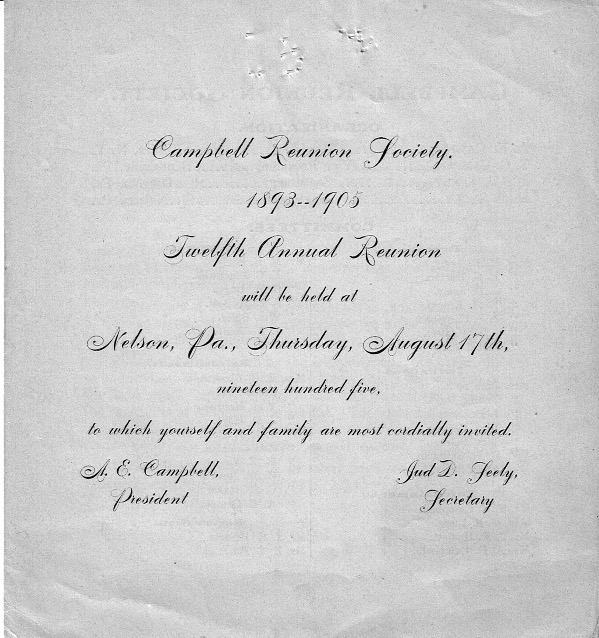 Campbell Reunion Society.
1893--1905
Twelfth Annual Reunion
will be held at
Nelson, Pa., Thursday, August 17th,
nineteen hundred five,
to which yourself and family are most cordially invited.
A. E. Campbell,
President
Jud D. Seely,
Secretary